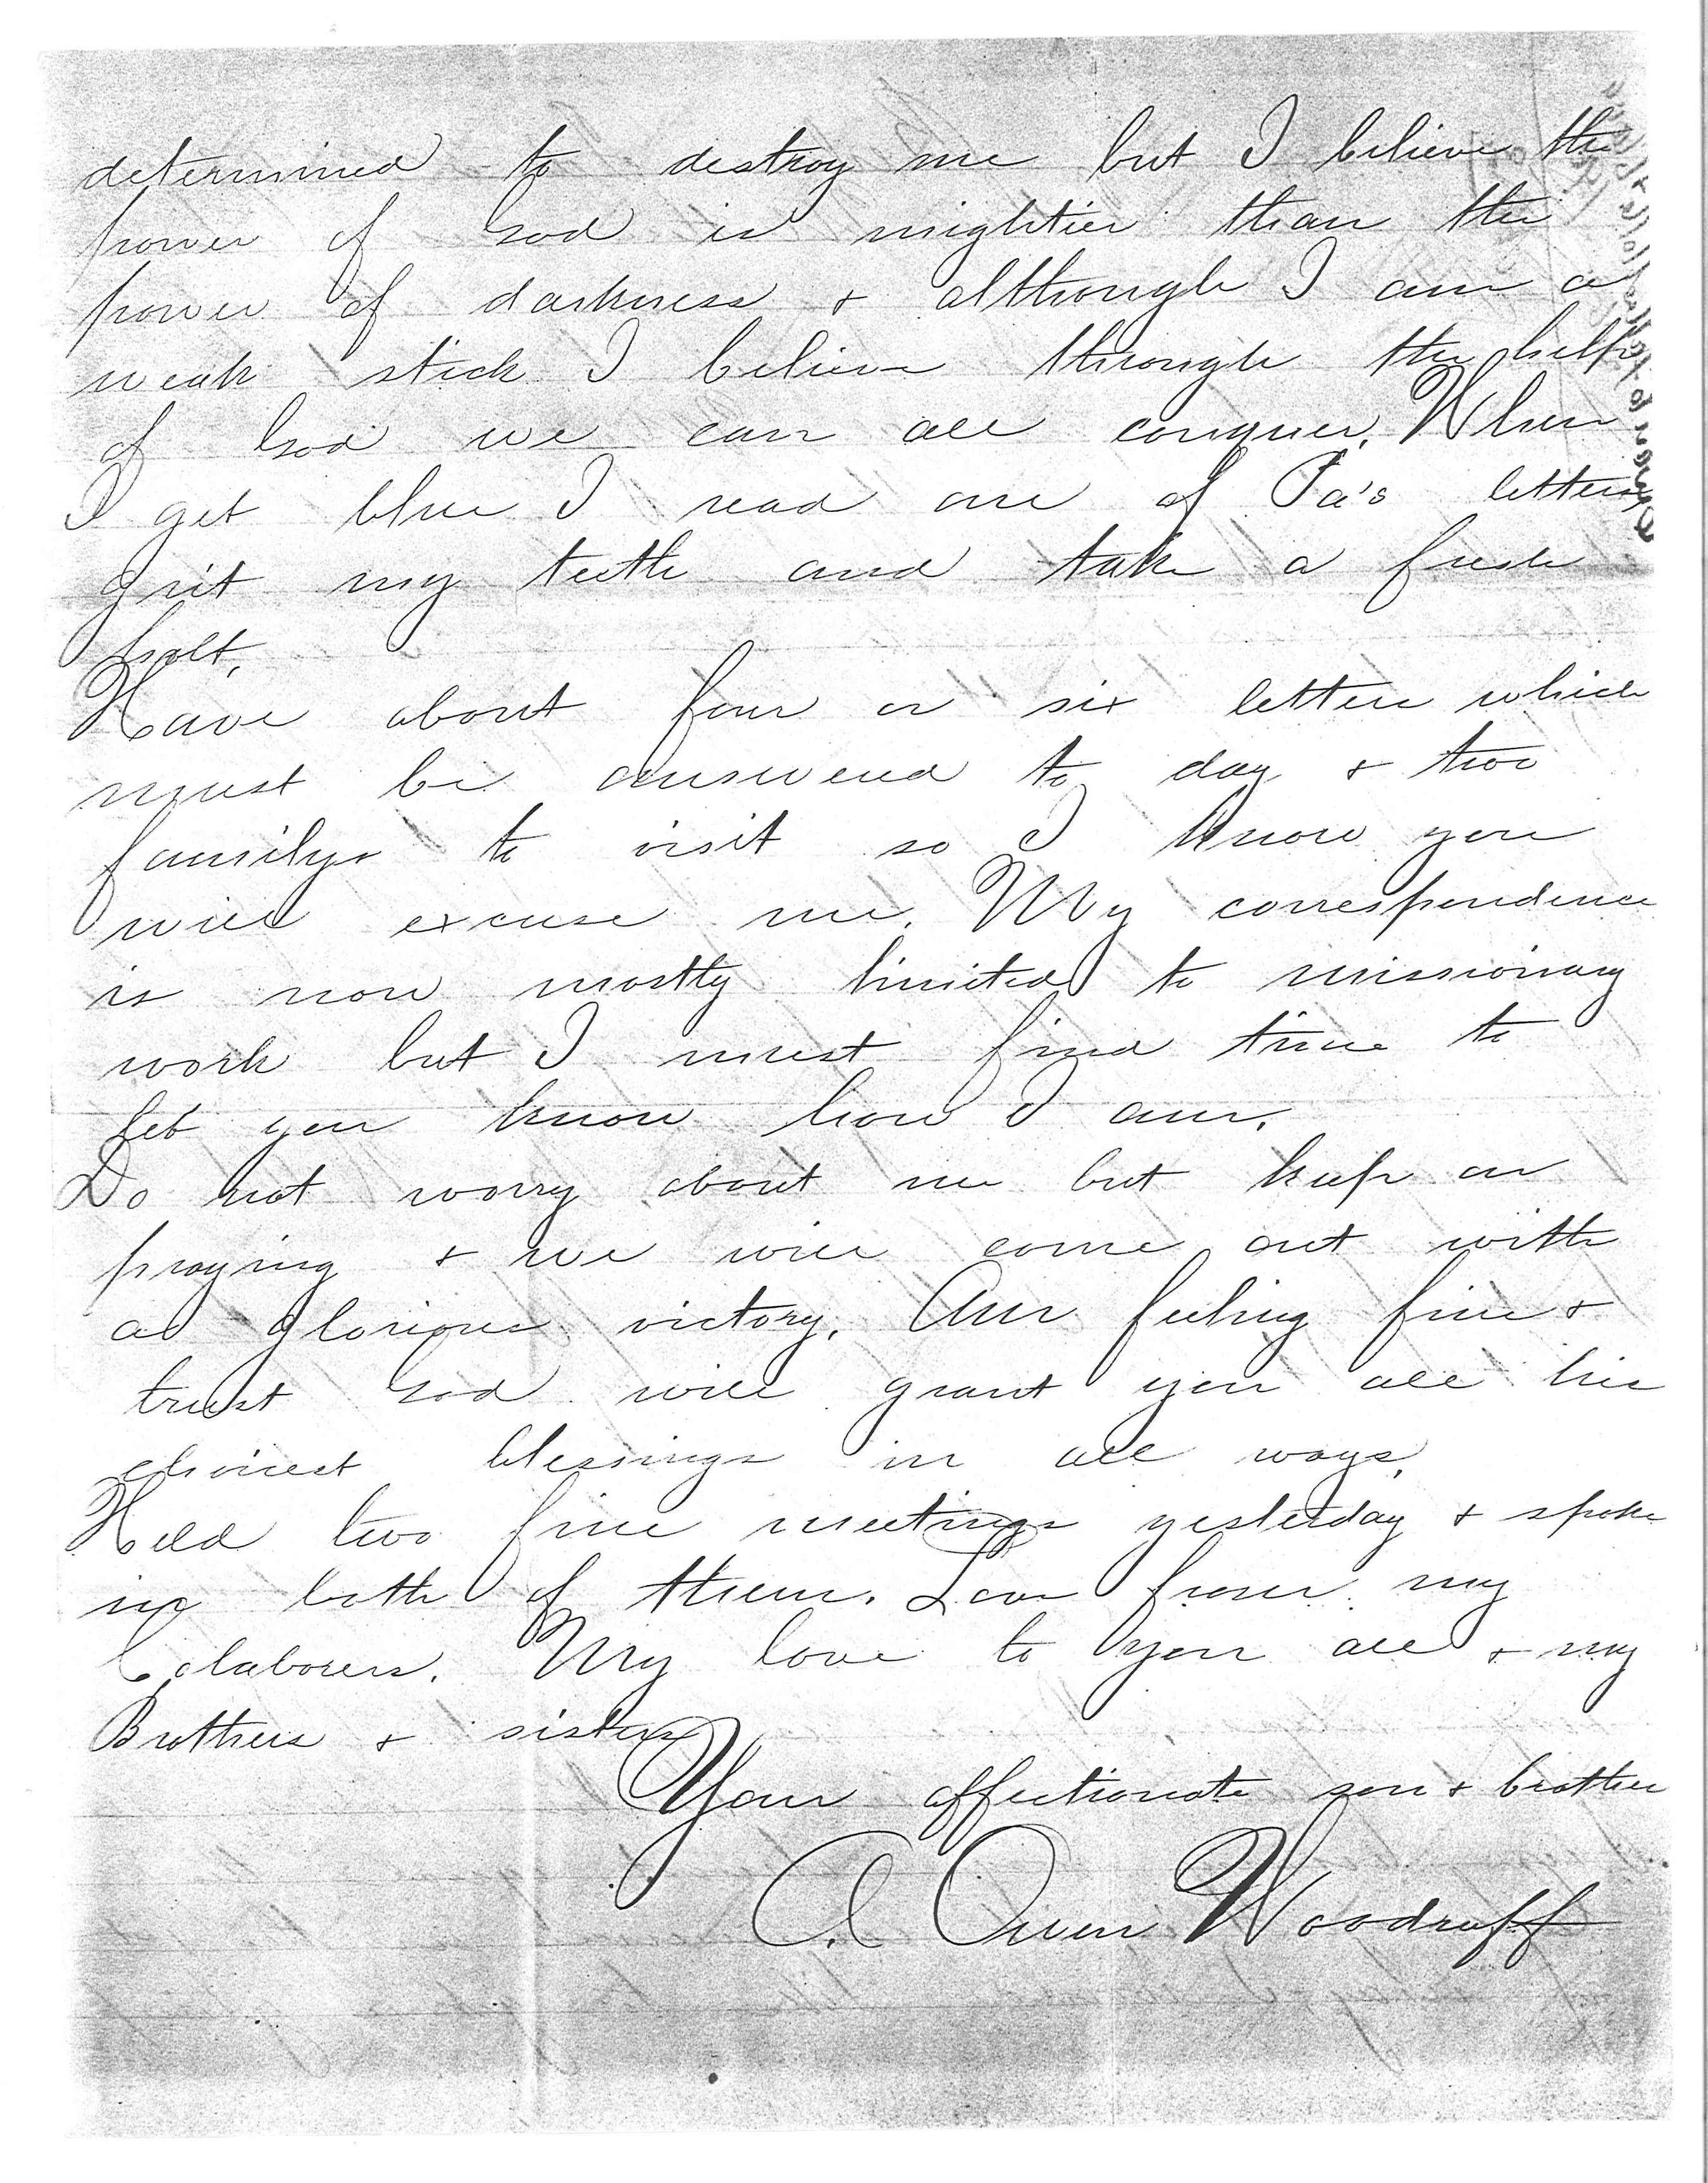 determined to destroy me but I believe the
power of God is mightier than the
power of darkness & although I am a
weak stick I believe through the help
of God we can all conquer. When
I get blue I read one of Pa's letters
grit my teeth and take a fresh
holt.
Have about four or six letters which
must be answered to day & two
familys to visit so I know you
will excuse me. My correspondence
is now mostly limited to missionary
work but I must find time to
let you know how I am.
Do not worry about me but keep on
praying & we will come out with
a glorious victory. Am feeling fine &
trust God will grant you all his
choicest blessings in all ways.
Held two fine meetings yesterday & spoke
in both of them. Love from my
Colaborers. My love to you all & my
Brothers & sisters
Your affectionate son & brother
A. Owen Woodruff